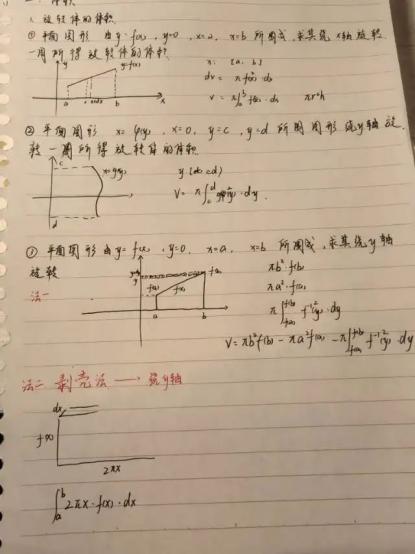 1. 旋转体的体积
① 平面图形 由 y=f(x), y=0, x=a, x=b 所围成, 求其绕 x轴旋转
一周所得旋转体的体积
y
y=f(x)
a
b
x
x: [a, b]
dv = π f²(x) · dx
V = π∫ₐᵇ f²(x) · dx
πr²h
② 平面图形 x=φ(y), x=0, y=c, y=d 所围图形绕y轴旋
转一周所得旋转体的体积
c
x=φ(y)
d
V = π
· dy
① 平面图形由 y=f(x), y=0, x=a, x=b 所围成, 求其绕y轴
旋转
法一
f(b)
f(a)
f(x)
a
b
πb²·f(b)
πa²·f(a)
π∫ f⁻¹²(y)·dy
V=πb²f(b)-πa²f(a)-π∫ f⁻¹²(y)·dy
法二 剥壳法 → 绕y轴
dx
f(x)
2πx
∫ₐᵇ 2πx·f(x)·dx